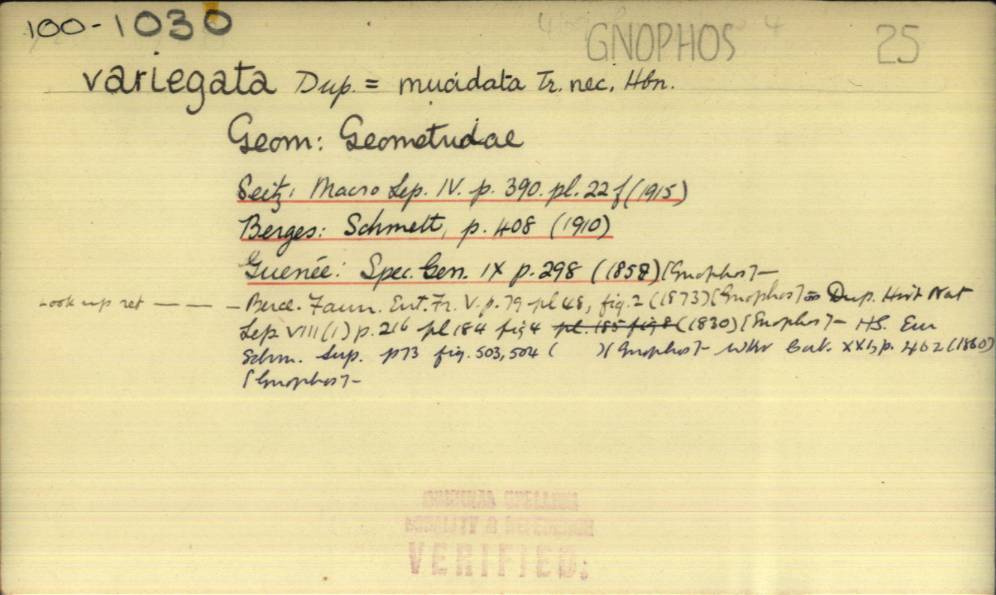 100-1030
GNOPHOS 4
25
variegata Dup. = mucidata Tr. nec. Hbn.
Geom: Geometridae
Seitz: Macro Lep. IV. p. 390. pl. 22 f (1915)
Berges: Schmett, p. 408 (1910)
Guenée: Spec. Gen. IX p. 298 (1858) [Gnophos] -
Look up ref — — — - Berce. Faun. Ent. Fr. V. p. 79 pl 48, fig. 2 (1873) [Gnophos] Dup. Hist Nat
Lep VIII (1) p. 216 pl 184 fig 4 pl. 185 fig 8 (1830) [Gnophos] - HS. Eur
Schm. Sup. p 73 fig. 503, 504 ( ) [Gnophos] - Wkr Cat. XXI, p. 402 (1860)
[Gnophos] -
ORIGINAL SPELLING
LOCALITY & REFERENCE
VERIFIED: